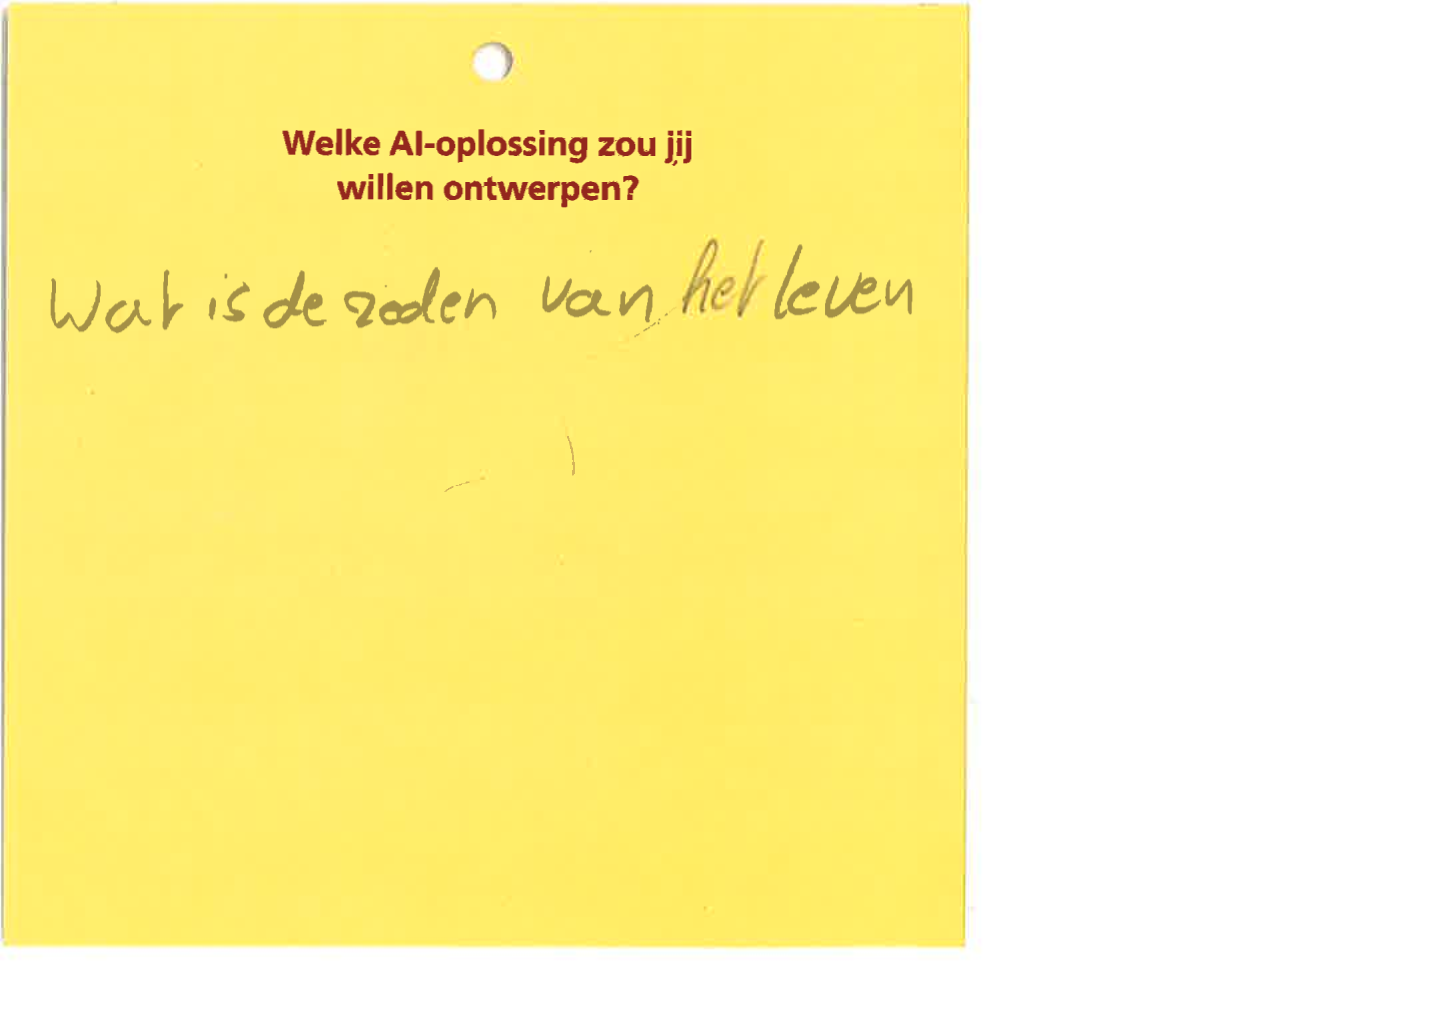 Welke AI-oplossing zou jij
willen ontwerpen?
Wat is de zoden van het leven